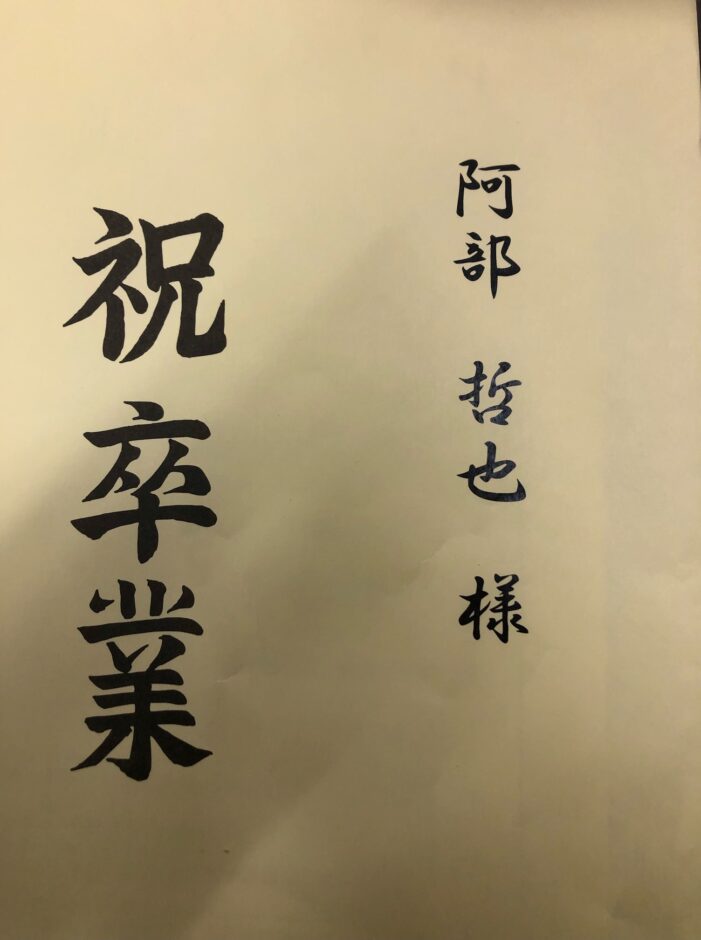 阿部 哲也 様
祝 卒業